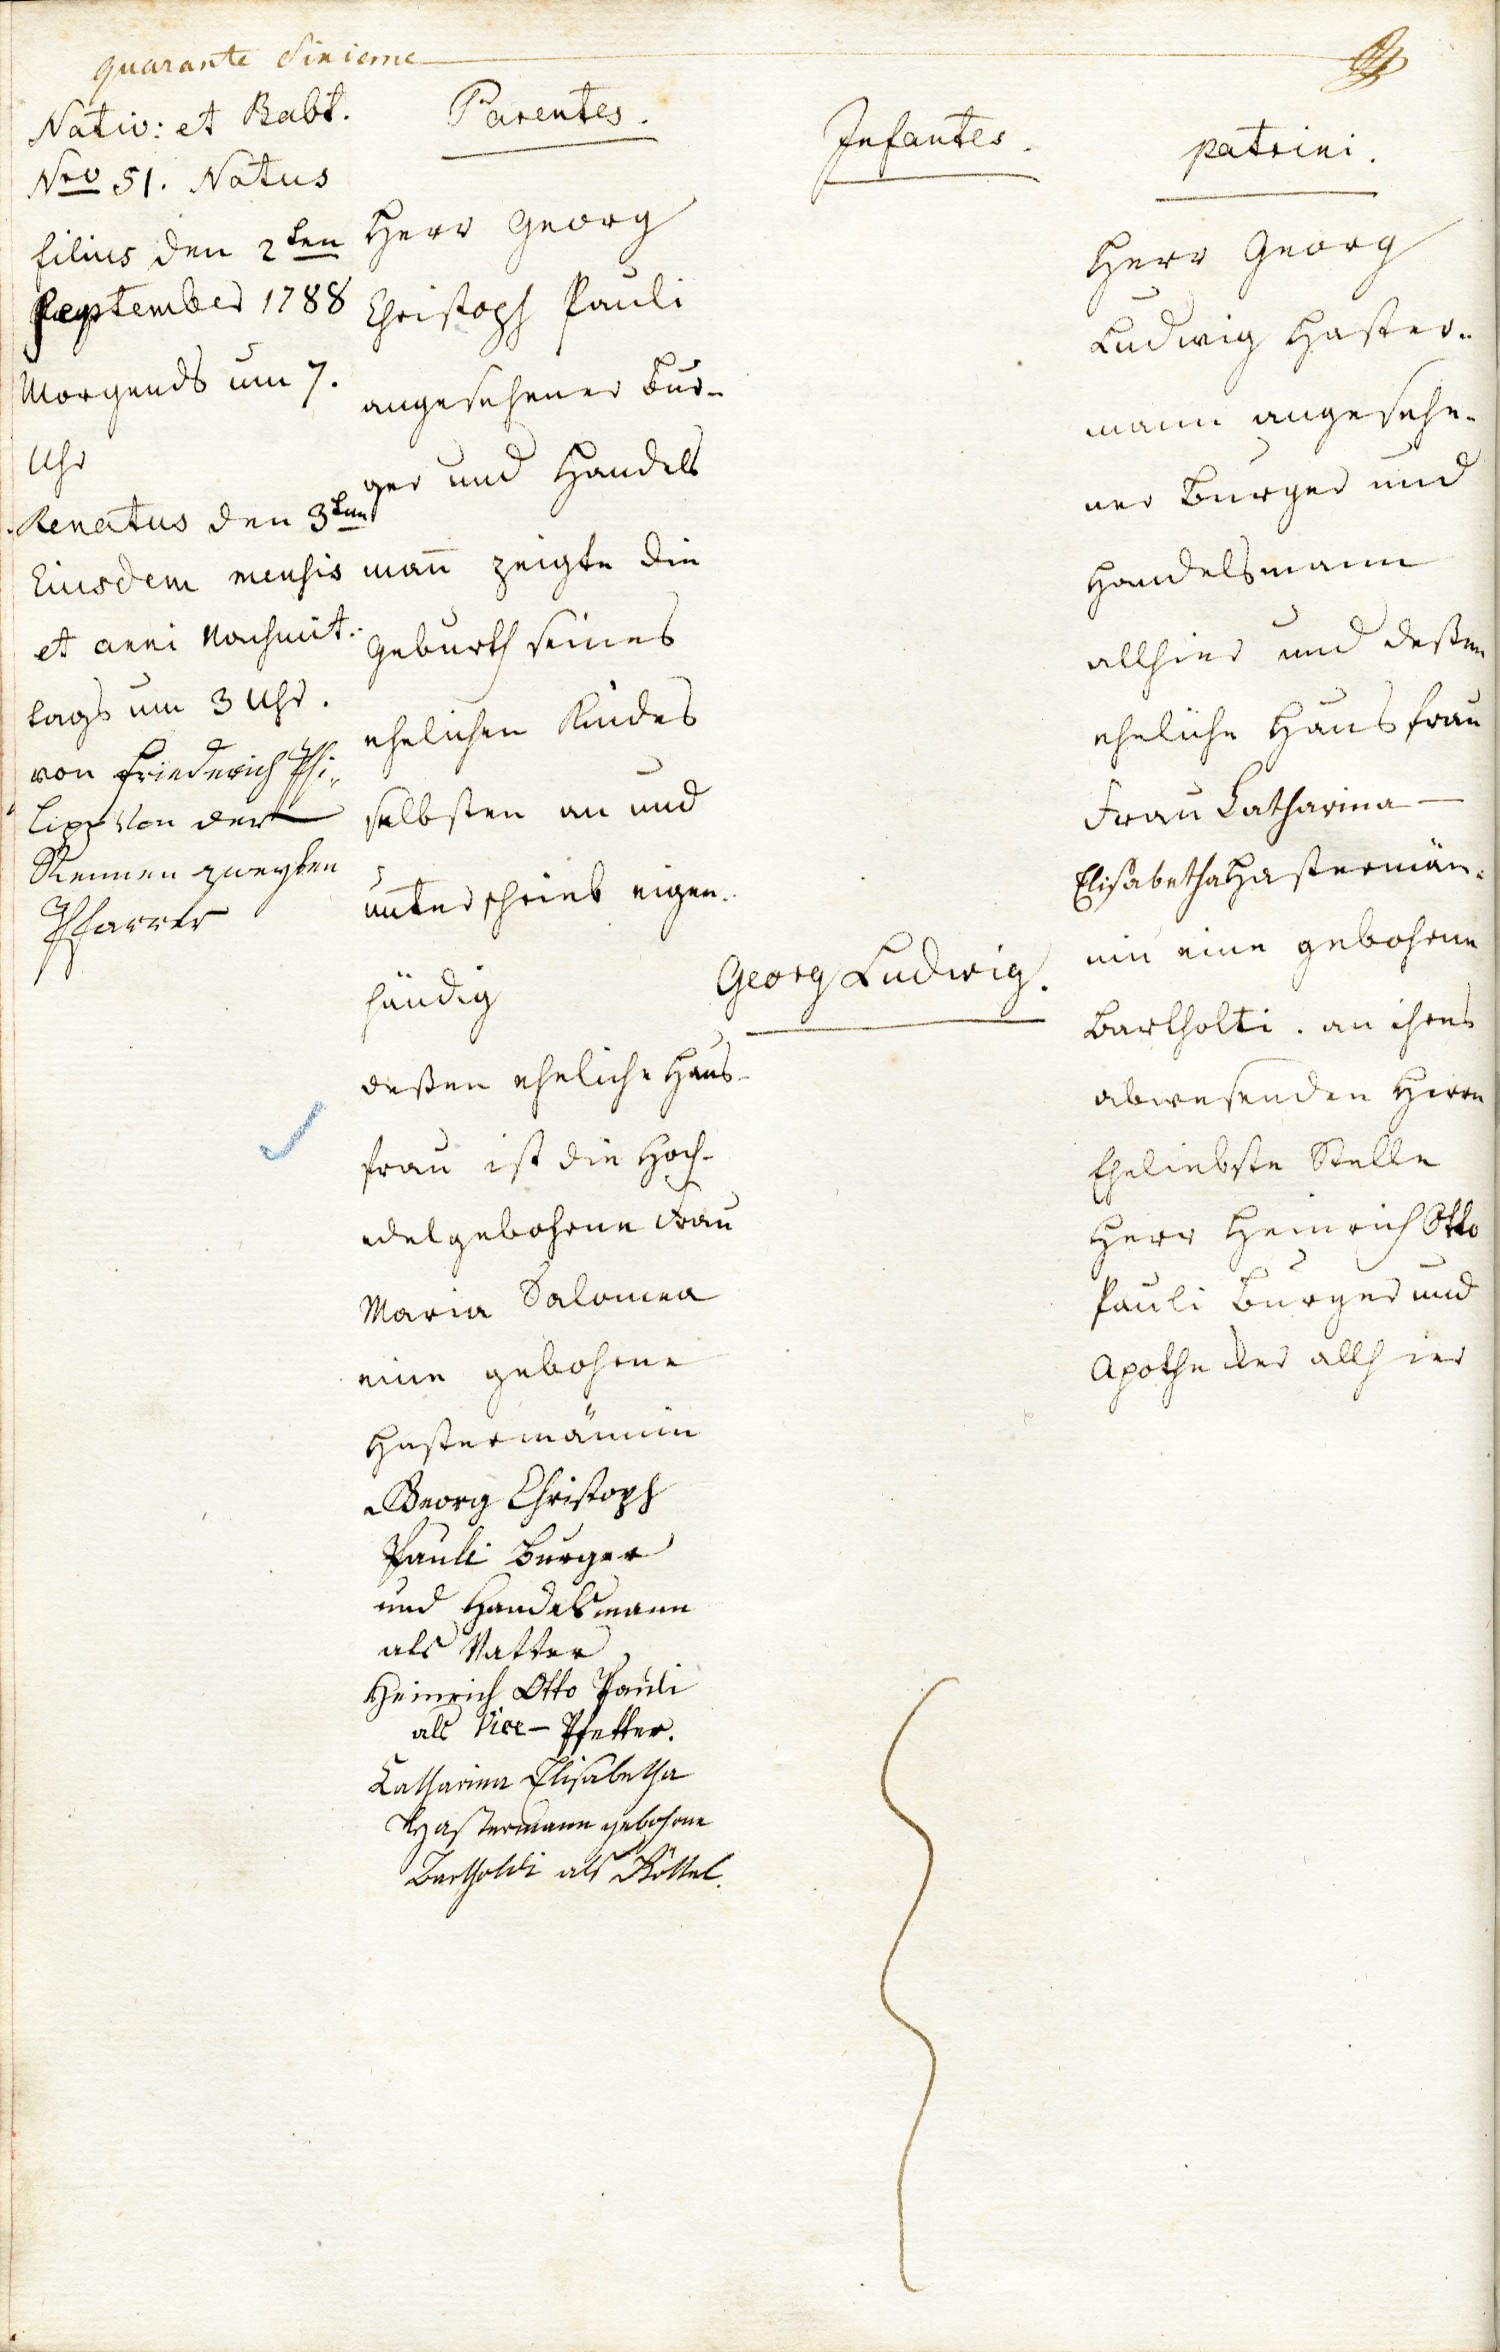 quarante Sixieme
Nativ: et Babt.
Nro 51. Natus
filius den 2ten
September 1788
Morgends um 7.
Uhr
Renatus den 3ten
Eiusdem mensis
et anni Nachmit-
tags um 3 Uhr.
von Friederich Phi-
lipp Von der
Rennen zweyten
Pfarrer
Parentes.
Herr Georg
Christoph Pauli
angesehener Bur-
ger und Handels
man̄ zeigte die
Geburth seines
ehelichen Kindes
selbsten an und
unterschrieb eigen-
händig
deßen eheliche Haus-
frau ist die Hoch-
edelgebohrne Frau
Maria Salomea
eine gebohrne
Hastermännin
Georg Christoph
Pauli Burger
und Handelsmann
als Vatter
Heinrich Otto Pauli
als Vice-Pfetter.
Catharina Elisabetha
Hastermann gebohrne
Bartholdi als Göttel.
Infantes.
Georg Ludwig.
patrini.
Herr Georg
Ludwig Haster-
mann angesehe-
ner Burger und
Handelsmann
allhier und deßen
eheliche Hausfrau
Frau Catharina
Elisabetha Hastermän-
nin eine gebohrne
Bartholti. an ihres
abwesenden Herrn
Eheliebste Stelle
Herr Heinrich Otto
Pauli Burger und
Apotheker allhier